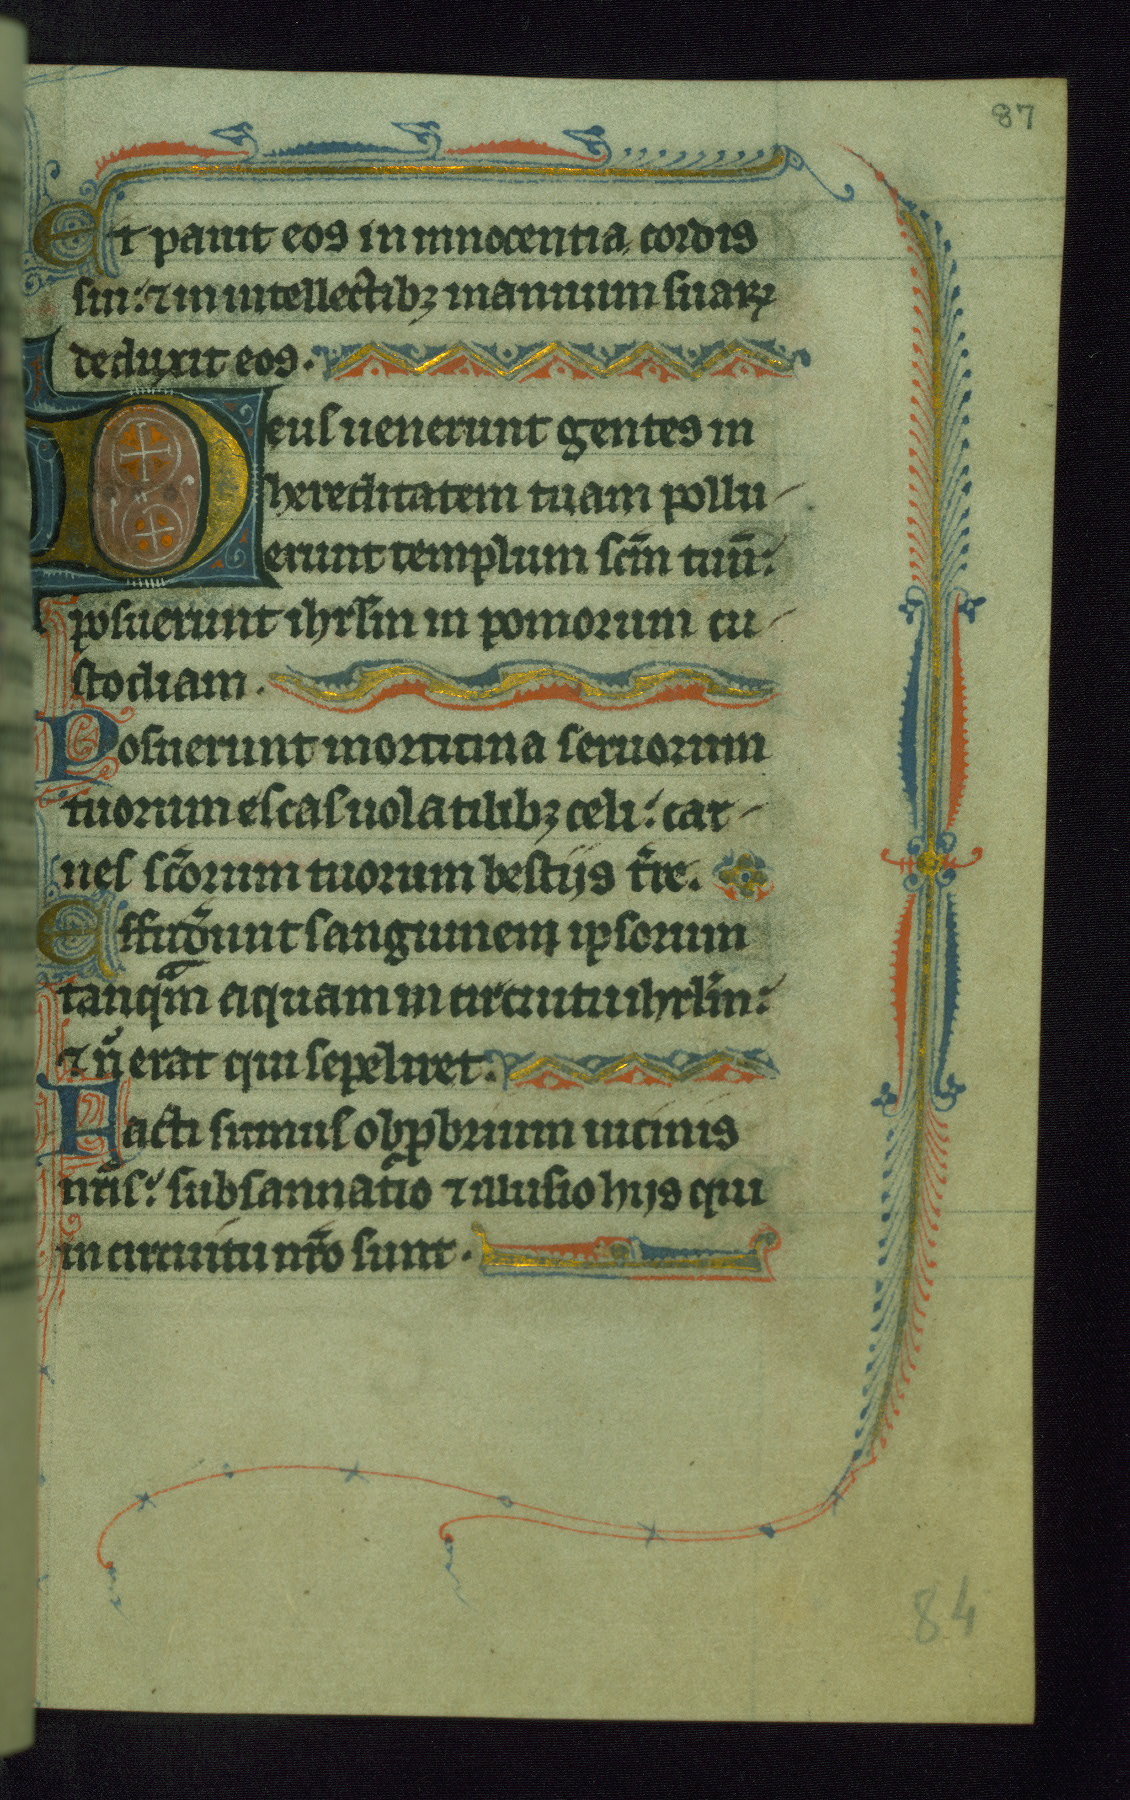 87
Et pauit eos in innocentia cordis
sui: ⁊ in intellectibꝫ manuum suaꝝ
deduxit eos.
Deus uenerunt gentes in
hereditatem tuam pollu
erunt templum scm̄ tuū:
posuerunt ihrlm̄ in pomorum cu
stodiam.
Posuerunt morticina seruorum
tuorum escas uolatilibꝫ celi: car
nes scōrum tuorum bestijs tr̄re.
Effuder̄unt sanguinem ipsorum
tanqm̄ aquam in circuitu ihrlm̄:
⁊ n̄ erat qui sepeliret.
Facti sumus obp̄brium uicinis
nr̄is: subsannatio ⁊ illusio hijs qui
in circuitu nr̄o sunt.
84